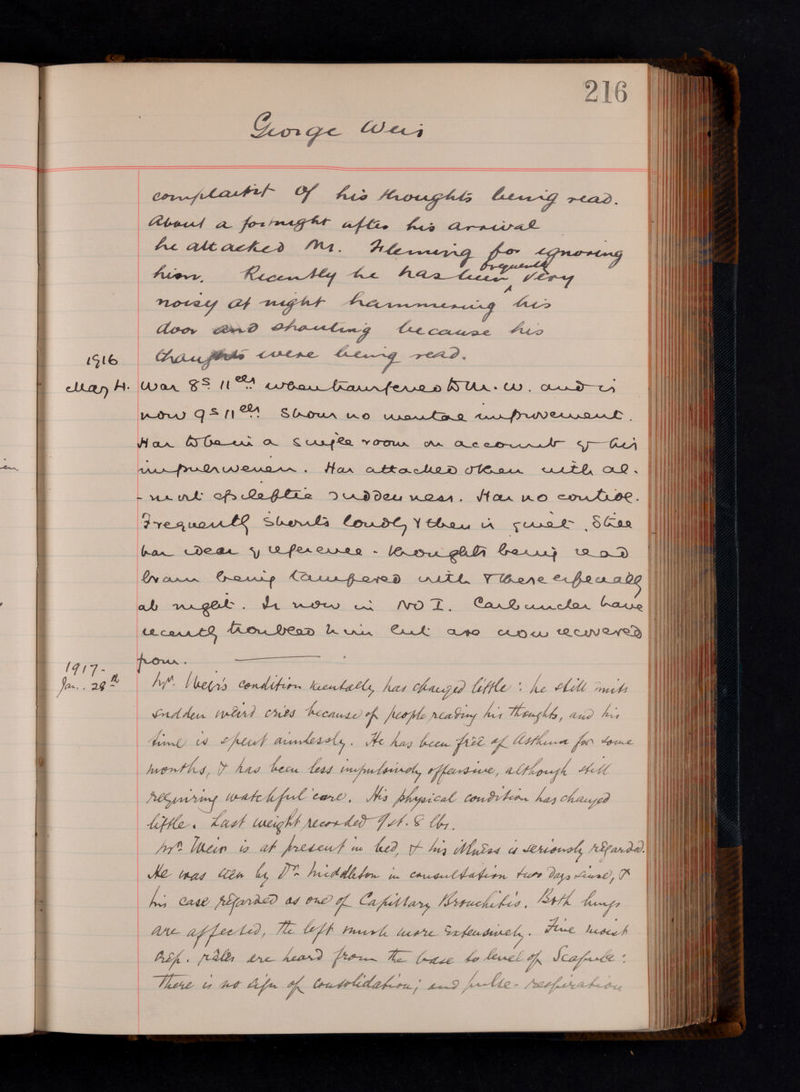 216
George Weir
complaint of his thoughts being read.
About a fortnight after his arrival
he attacked Mr. Fleming for ignoring
him. Recently he has been frequently very
noisy at night hammering his
door and shouting because his
thoughts were being read.
1916
May 4. Was 8s 11 when transferred to M. W. and is
now 9s 11 Shows no mental improvement.
Has to be in a single room on account of his
impulsiveness. Has attacked others with al-
-most epileptic suddenness. Has no control.
Frequently shouts loudly & then is quiet. Still
has ideas of reference - thoughts being read
brain being tampered with & these especially
at night. Is now in No I. Carbuncles have
recently troubled him but are now recovered
from.
1917-
Jan. 29th Mr. Weir's condition mentally has changed little: he still emits
sudden weird cries because of people reading his thoughts, and his
time is spent aimlessly. He has been free of Asthma for some
months, & has been less impulsively offensive, although still
requiring watchful care. His physical condition has changed
little. Last weight recorded 9st. 8 lbs.
Mr. Weir is at present in bed, & his illness is seriously regarded.
He was seen by Dr. Middleton in consultation two days since, &
his case regarded as one of Capillary Bronchitis. Both lungs
are affected, the left much more extensively. Fine moist
rales are heard from the base to level of Scapula:
There is no sign of consolidation; and pulse-respiration